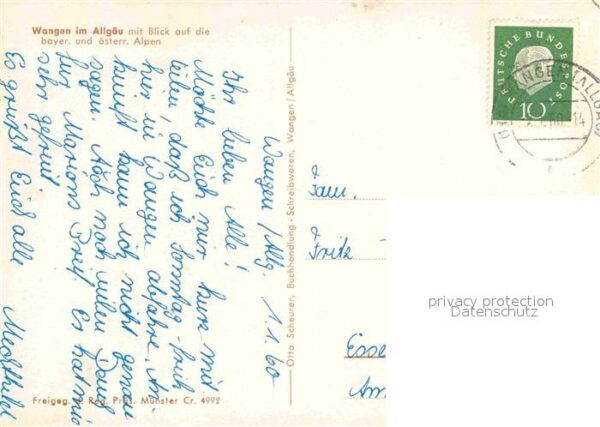 Wangen im Allgäu mit Blick auf die
bayer. und österr. Alpen
Wangen/Allg. 1.1.60
Ihr lieben Alle!
Möchte Euch nur kurz mit
teilen, daß ich Sonntag-früh
hier in Wangen abfahre. An
kunft kann ich nicht genau
sagen. Auch noch vielen Dank
für Marions Brief. Es hat mich
sehr gefreut
Es grüßt Euch alle
Mechthild
Otto Scheurer, Buchhandlung - Schreibwaren, Wangen/Allgäu
Freigeg. Reg. Präs. Münster Cr. 4992
DEUTSCHE BUNDESPOST
10
WANGEN (ALLGÄU)
Fam.
Fritz
Esse
Am
privacy protection
Datenschutz